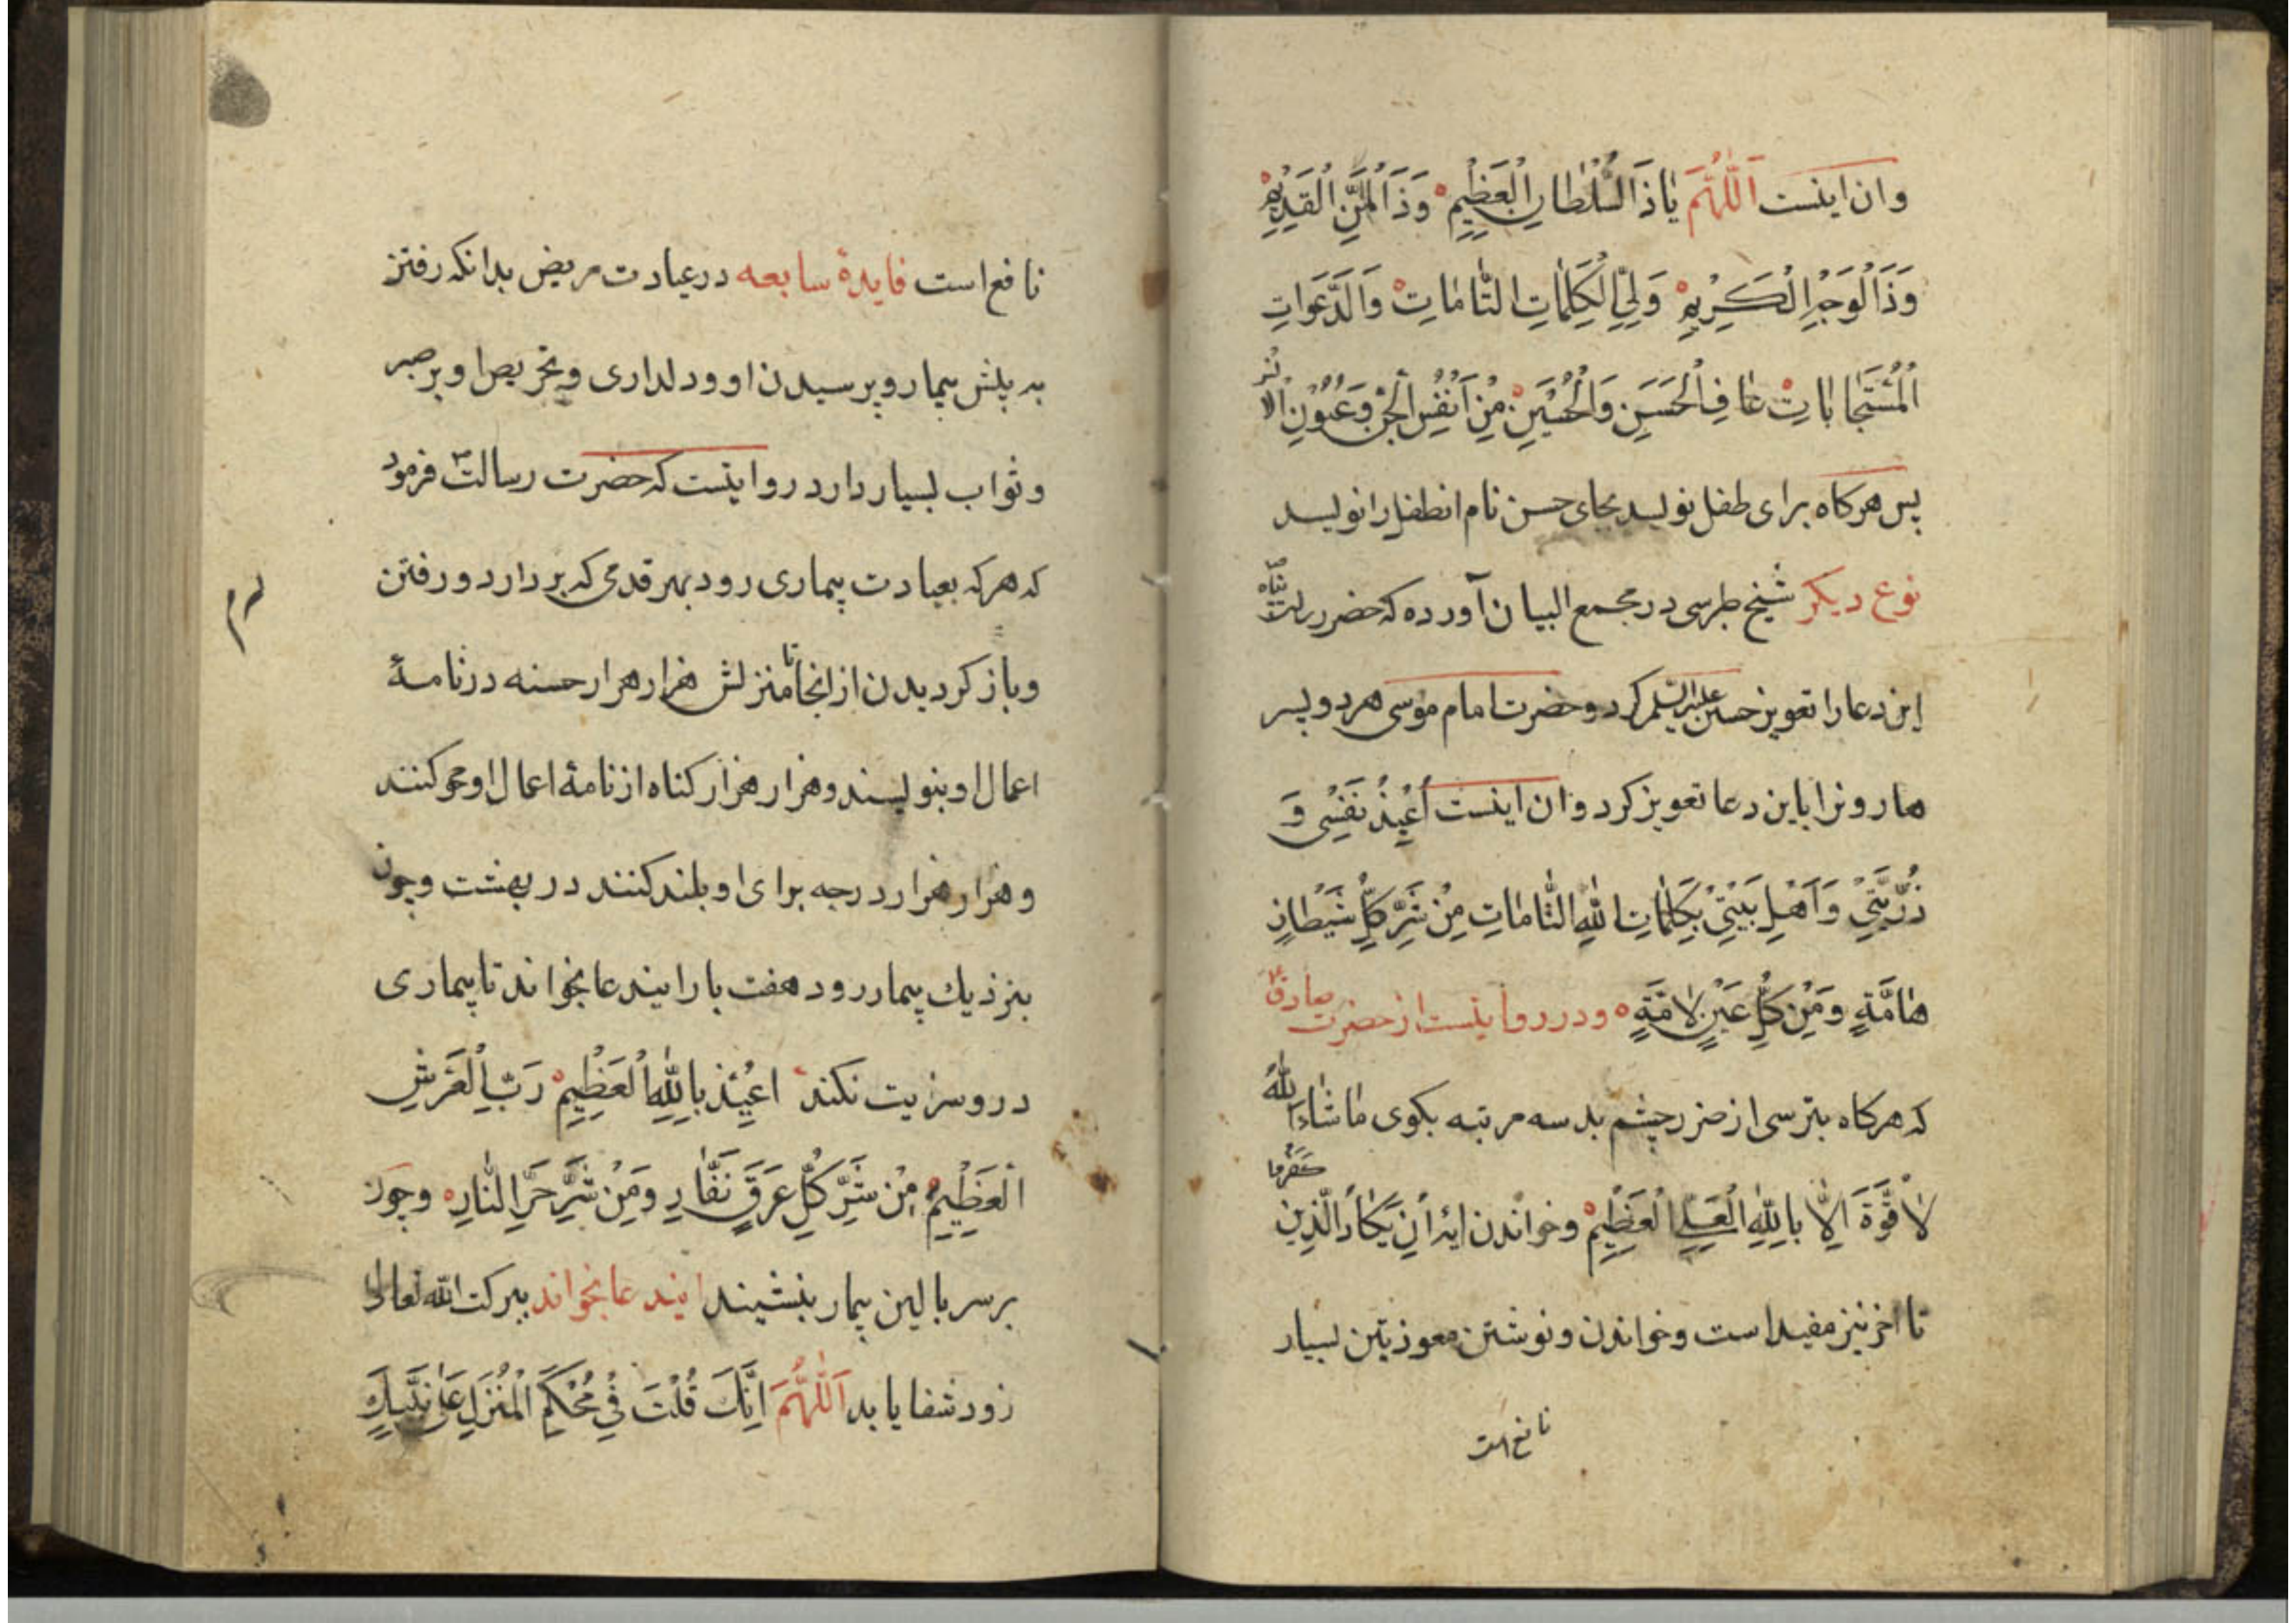 وان اینست اَللّٰهُمَّ یٰاذَالسُّلْطٰانِ الْعَظٖیمِ وَذَالْمَنِّ الْقَدٖیمِ
وَذَالْوَجْهِ الْکَرٖیمِ وَلِیَّ الْکَلِمٰاتِ التّٰامّٰاتِ وَالدَّعَوٰاتِ
الْمُسْتَجٰابٰاتِ عٰافِ الْحَسَنِ وَالْحُسَیْنِ مِنْ اَنْفُسِ الْجِنِّ وَعُیُوْنِ الْاِنْسِ
پس هرکاه برای طفل نویسد بجای حسن نام انطفل را نویسد
نوع دیکر شیخ طبرسی در مجمع البیان آورده که حضرت رسالت پناه
این دعا را تعویذ حسنین علیهما السلم کرد و حضرت امام موسی هر دو پسر
هارونرا باین دعا تعویذ کرد وان اینست اُعٖیذُ نَفْسٖی وَ
ذُرِّیَّتٖی وَاَهْلِ بَیْتٖی بِکَلِمٰاتِ اللّٰهِ التّٰامّٰاتِ مِنْ شَرِّ کُلِّ شَیْطٰانٍ
هٰامَّةٍ وَمِنْ کُلِّ عَیْنٍ لٰامَّةٍ ودر روایتست از حضرت صادق ع
که هرکاه بترسی از ضرر چشم بد سه مرتبه بکوی مٰاشٰاءَ اللّٰهُ
لٰاقُوَّةَ اِلّٰا بِاللّٰهِ الْعَلِیِّ الْعَظٖیمِ وخواندن ایه اِنْ یَکٰادُ الَّذٖینَ کَفَرُوا
تا اخر نیز مفید است وخواندن ونوشتن معوذتین بسیار
نافع است
نافع است فایدهٔ سابعه در عیادت مریض بدانکه رفتن
به پیش بیمار و پرسیدن او ودلداری وتحریص او بر صبر
وثواب بسیار دارد روایتست که حضرت رسالت ص فرمود
که هرکه بعیادت بیماری رود بهر قدمی که بردارد در رفتن
وباز کردیدن از انجا تا منزلش هزار هزار حسنه در نامهٔ
اعمال او بنویسند وهزار هزار کناه از نامهٔ اعمال او محو کنند
وهزار هزار درجه برای او بلند کنند در بهشت وچون
بنزدیك بیمار رود هفت بار ایندعا بخواند تا بیماری
درو سرایت نکند اعُیٖذُ بِاللّٰهِ الْعَظٖیمِ رَبِّ الْعَرْشِ
الْعَظٖیمِ مِنْ شَرِّ کُلِّ عَرَقٍ نَفّٰارٍ وَمِنْ شَرِّ حَرِّ النّٰارِ وچون
بر سر بالین بیمار بنشیند ایندعا بخواند ببرکت الله تعالی
زود شفا یابد اَللّٰهُمَّ اِنَّكَ قُلْتَ فٖی مُحْکَمِ الْمُنْزَلِ عَلیٰ نَبِیِّكَ